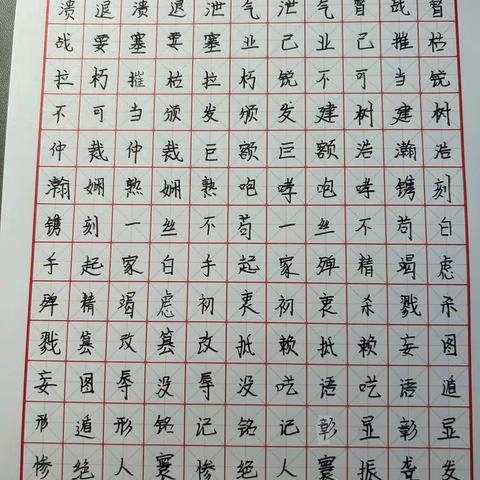 溃退溃退泄气泄气督战督
战要塞要塞业己业己摧枯
拉朽摧枯拉朽锐不可当锐
不可当颁发颁发建树建树
仲裁仲裁巨额巨额浩瀚浩
瀚娴熟娴熟咆哮咆哮镌刻
镌刻一丝不苟一丝不苟白
手起家白手起家殚精竭虑
殚精竭虑初衷初衷杀戮杀
戮篡改篡改抵赖抵赖妄图
妄图辱没辱没呓语呓语遁
形遁形铭记铭记彰显彰显
惨绝人寰惨绝人寰振聋发